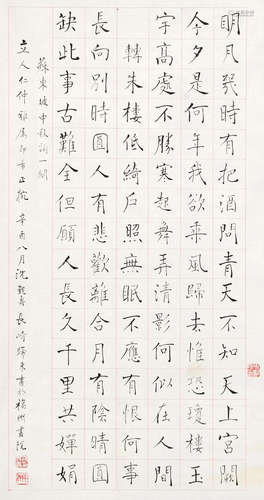 明月幾時有把酒問青天不知天上宮闕
今夕是何年我欲乘風歸去惟恐瓊樓玉
宇高處不勝寒起舞弄清影何似在人間
轉朱樓低綺戶照無眠不應有恨何事
長向別時圓人有悲歡離合月有陰晴圓
缺此事古難全但願人長久千里共嬋娟
蘇東坡中秋詞一闋
立人仁仲雅屬即希正腕辛酉八月沈覲壽長崎歸來書於福州畫院